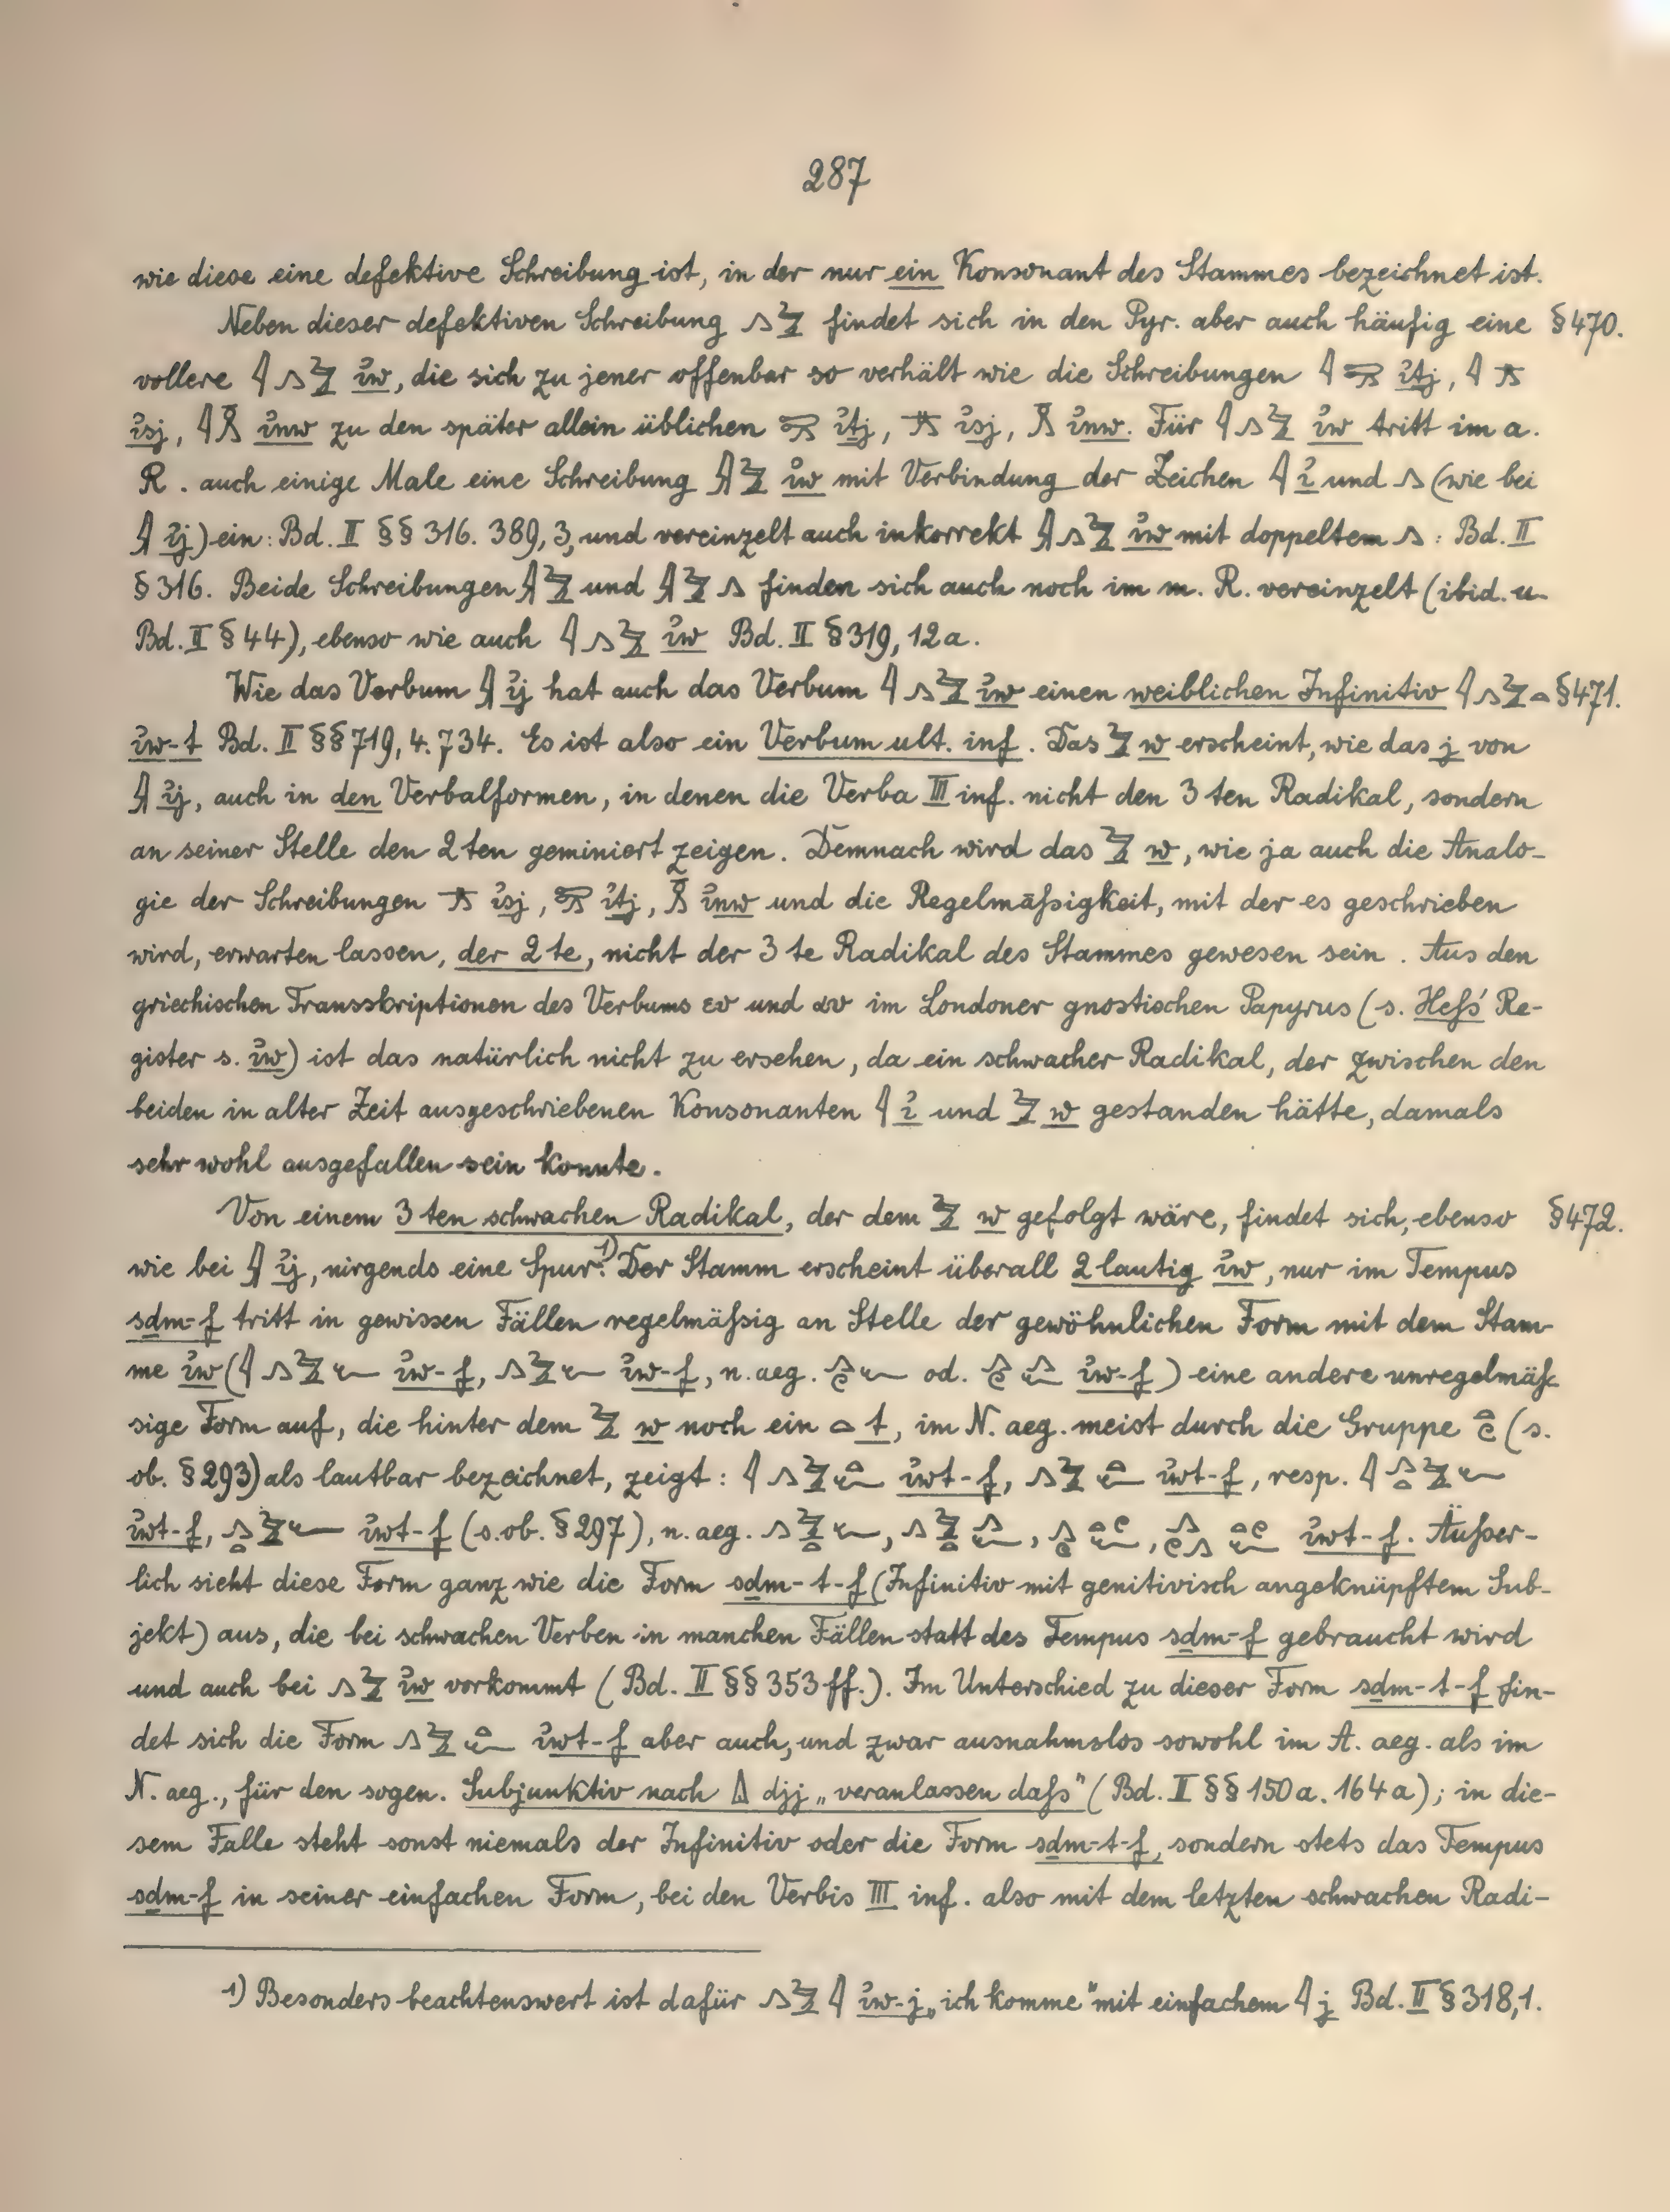 287
wie diese eine defektive Schreibung ist, in der nur ein Konsonant des Stammes bezeichnet ist.
Neben dieser defektiven Schreibung 𓂻𓅱 findet sich in den Pyr. aber auch häufig eine §470.
vollere 𓇋𓂻𓅱 ı͗w, die sich zu jener offenbar so verhält wie die Schreibungen 𓇋 ı͗tj, 𓇋
ı͗sj, 𓇋𓏎 ı͗nw zu den später allein üblichen ı͗tj, ı͗sj, 𓏎 ı͗nw. Für 𓇋𓂻𓅱 ı͗w tritt im a.
R. auch einige Male eine Schreibung 𓇍𓅱 ı͗w mit Verbindung der Zeichen 𓇋 ı͗ und 𓂻 (wie bei
𓇍 ı͗j) ein: Bd. II §§ 316. 389, 3, und vereinzelt auch inkorrekt 𓇍𓂻𓅱 ı͗w mit doppeltem 𓂻: Bd. II
§ 316. Beide Schreibungen 𓇍𓅱 und 𓇍𓅱𓂻 finden sich auch noch im m. R. vereinzelt (ibid. u.
Bd. II § 44), ebenso wie auch 𓇋𓂻𓅱 ı͗w Bd. II § 319, 12a.
Wie das Verbum 𓇍 ı͗j hat auch das Verbum 𓇋𓂻𓅱 ı͗w einen weiblichen Infinitiv 𓇋𓂻𓅱𓏏 §471.
ı͗w-t Bd. II §§ 719, 4. 734. Es ist also ein Verbum ult. inf. Das 𓅱 w erscheint, wie das j von
𓇍 ı͗j, auch in den Verbalformen, in denen die Verba III inf. nicht den 3ten Radikal, sondern
an seiner Stelle den 2ten geminiert zeigen. Demnach wird das 𓅱 w, wie ja auch die Analo-
gie der Schreibungen ı͗sj, ı͗tj, 𓏎 ı͗nw und die Regelmäßigkeit, mit der es geschrieben
wird, erwarten lassen, der 2te, nicht der 3te Radikal des Stammes gewesen sein. Aus den
griechischen Transskriptionen des Verbums ευ und αυ im Londoner gnostischen Papyrus (s. Heß' Re-
gister s. ı͗w) ist das natürlich nicht zu ersehen, da ein schwacher Radikal, der zwischen den
beiden in alter Zeit ausgeschriebenen Konsonanten 𓇋 ı͗ und 𓅱 w gestanden hätte, damals
sehr wohl ausgefallen sein konnte.
Von einem 3ten schwachen Radikal, der dem 𓅱 w gefolgt wäre, findet sich, ebenso §472.
wie bei 𓇍 ı͗j, nirgends eine Spur.1) Der Stamm erscheint überall 2lautig ı͗w, nur im Tempus
sḏm-f tritt in gewissen Fällen regelmäßig an Stelle der gewöhnlichen Form mit dem Stam-
me ı͗w (𓇋𓂻𓅱𓆑 ı͗w-f, 𓂻𓅱𓆑 ı͗w-f, n. aeg. 𓂻𓏲𓆑 od. 𓂻𓏲𓂻𓆑 ı͗w-f) eine andere unregelmäs-
sige Form auf, die hinter dem 𓅱 w noch ein 𓏏 t, im N. aeg. meist durch die Gruppe 𓏏𓏲 (s.
ob. § 293) als lautbar bezeichnet, zeigt: 𓇋𓂻𓅱𓏏𓆑 ı͗wt-f, 𓂻𓅱𓏏𓆑 ı͗wt-f, resp. 𓇋𓂻𓏏𓅱𓆑
ı͗wt-f, 𓂻𓏏𓅱𓆑 ı͗wt-f (s. ob. § 297), n. aeg. 𓂻𓅱𓏏𓆑, 𓂻𓅱𓏏𓂻𓆑, 𓂻𓏲𓏏𓏲𓆑, 𓂻𓏲𓂻𓏏𓏲𓆑 ı͗wt-f. Äußer-
lich sieht diese Form ganz wie die Form sḏm-t-f (Infinitiv mit genitivisch angeknüpftem Sub-
jekt) aus, die bei schwachen Verben in manchen Fällen statt des Tempus sḏm-f gebraucht wird
und auch bei 𓂻𓅱 ı͗w vorkommt (Bd. II §§ 353 ff.). Im Unterschied zu dieser Form sḏm-t-f fin-
det sich die Form 𓂻𓅱𓏏𓆑 ı͗wt-f aber auch, und zwar ausnahmslos sowohl im A. aeg. als im
N. aeg., für den sogen. Subjunktiv nach 𓏙 djj „veranlassen daß" (Bd. II §§ 150a. 164a); in die-
sem Falle steht sonst niemals der Infinitiv oder die Form sḏm-t-f, sondern stets das Tempus
sḏm-f in seiner einfachen Form, bei den Verbis III inf. also mit dem letzten schwachen Radi-
1) Besonders beachtenswert ist dafür 𓂻𓅱𓇋 ı͗w-j „ich komme" mit einfachem 𓇋 j Bd. II § 318,1.